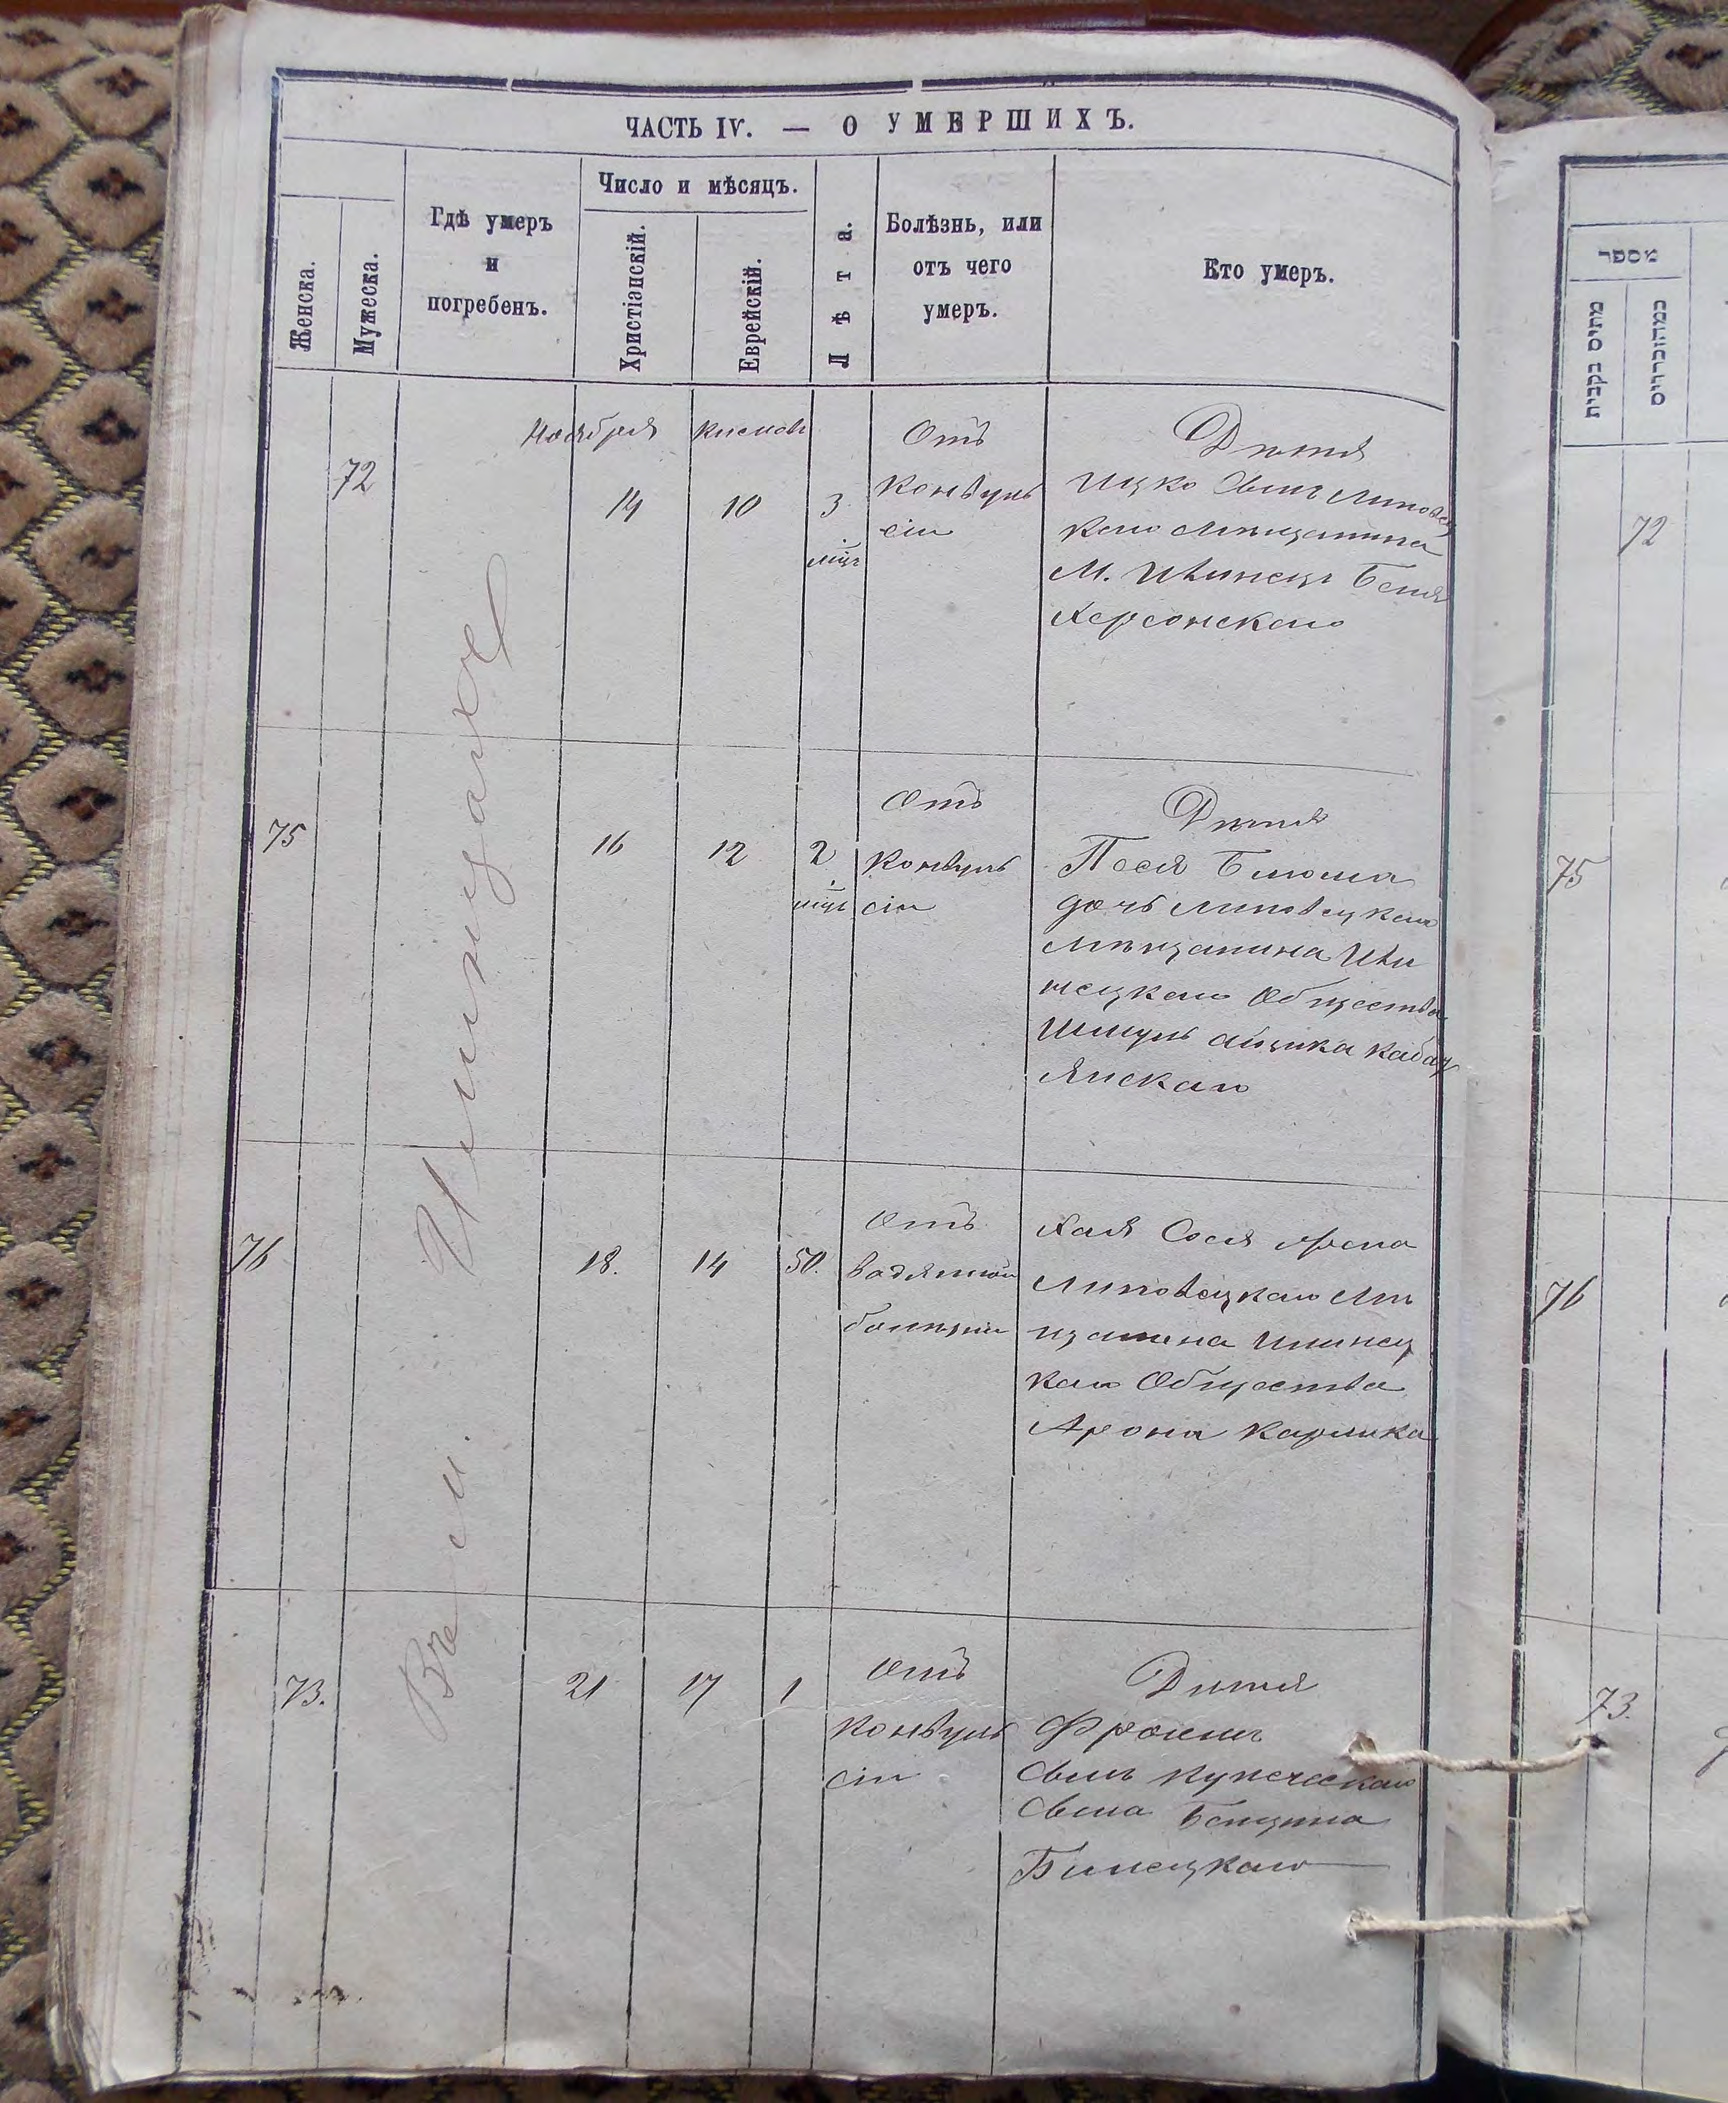 ЧАСТЬ IV. — О УМЕРШИХЪ.
Женска.
Мужеска.
Гдѣ умеръ
и
погребенъ.
Число и мѣсяцъ.
Христіанскій.
Еврейскій.
Лѣта.
Болѣзнь, или
отъ чего
умеръ.
Кто умеръ.
Въ м. Илинцахъ
Ноября
Кислевъ
72
14
10
3
мцъ
Отъ
Конвуль
сіи
Дитя
Ицко Сынъ Липовец
каго мѣщанина
М. Илинецъ Беня
Херсонскаго
75
16
12
2
мцъ
Отъ
Конвуль
сіи
Дитя
Песя Блюма
дочь Липовецкаго
мѣщанина Или
нецкаго Общества
Шмуль Айзика Кабач
янскаго
76
18.
14
50.
Отъ
водяной
болѣзни
Хая Сося жена
Липовецкаго мѣ
щанина Илинец
каго Общества
Арона Карлика
73.
21
17
1
Отъ
Конвуль
сіи
Дитя
Фроимъ
Сынъ купеческаго
Сына Бенциона
Билецкаго
מספר
מתים נקבות
72
75
76
73.